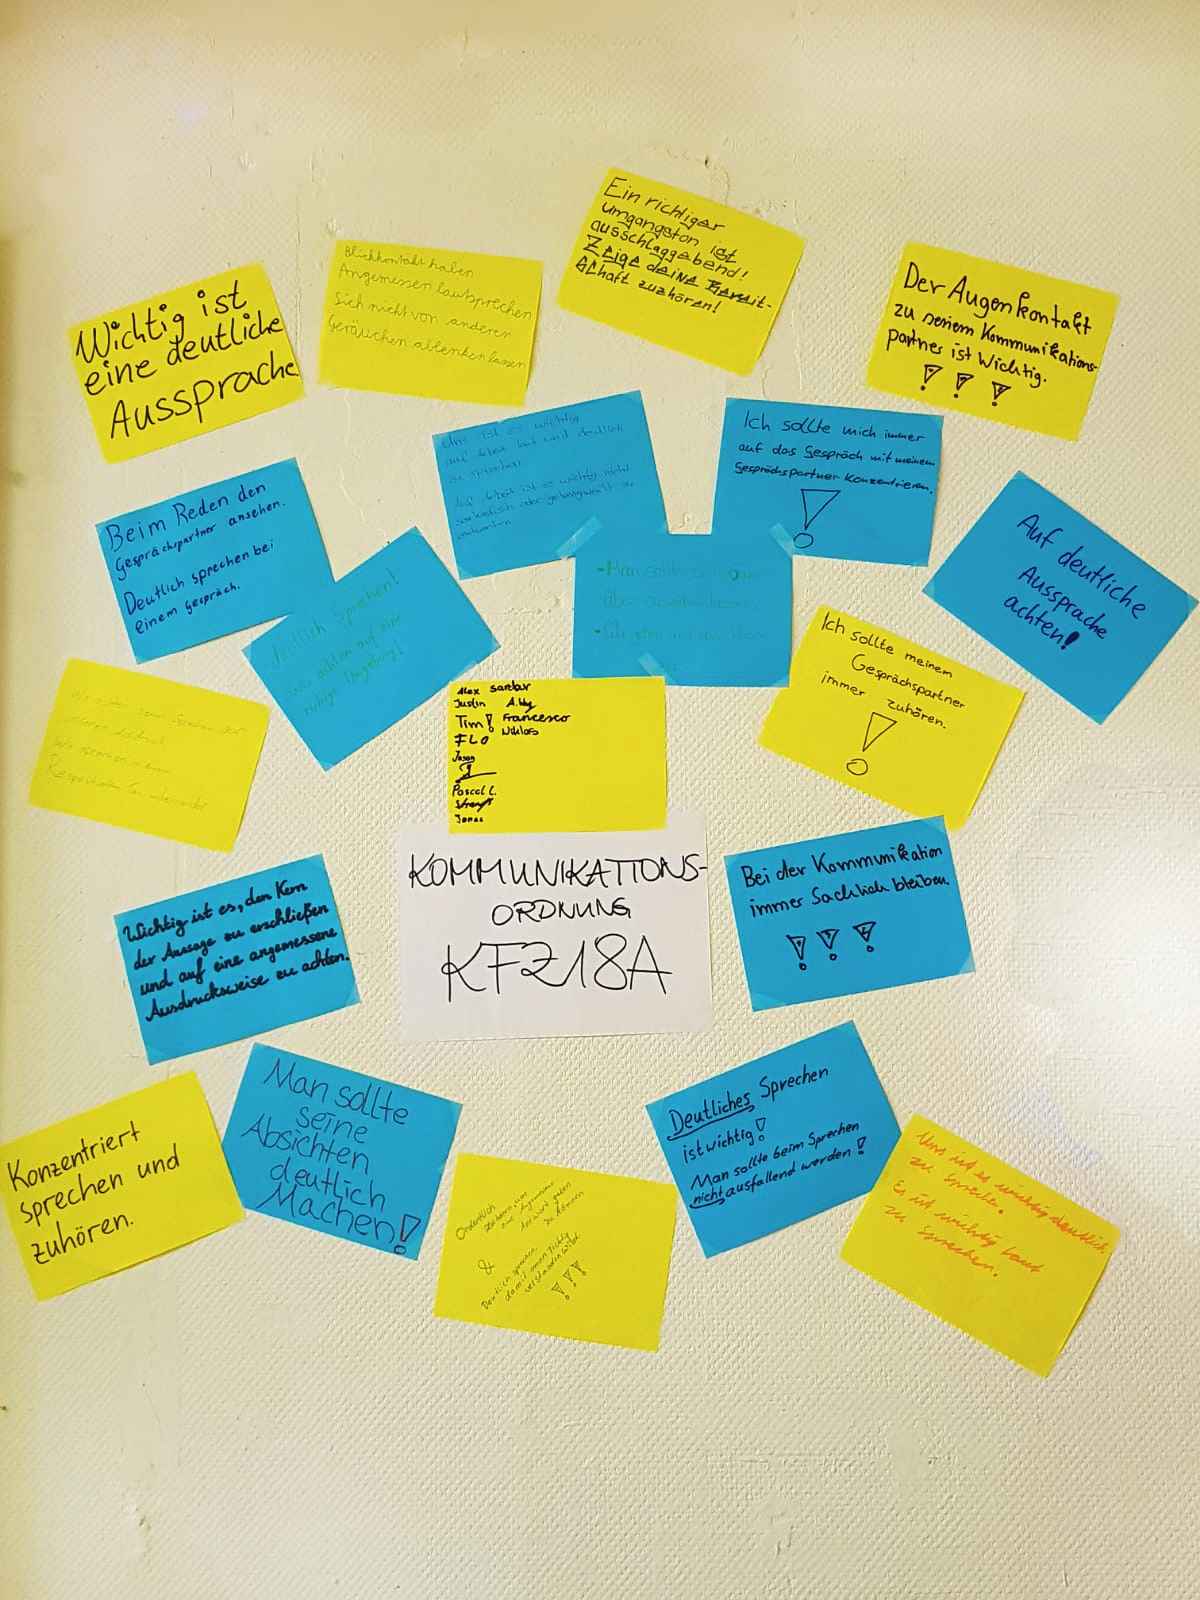 Ein richtiger
umgangston ist
ausschlaggebend!
Zeige deine Bereit-
schaft zuzhören!
Blickkontakt haben
Angemessen lautsprechen
Sich nicht von anderen
Geräuschen ablenken lassen
Der Augenkontakt
zu seinem Kommunikations-
partner ist Wichtig.
! ! !
Wichtig ist
eine deutliche
Aussprache
Uns ist es wichtig
auf Arbeit laut und deutlich
zu sprechen
Auf Arbeit ist es wichtig nicht
sarkastisch oder gelangweilt zu
antworten
Ich sollte mich immer
auf das Gespräch mit meinem
Gesprächspartner Konzentrieren.
!
Beim Reden den
Gesprächspartner ansehen.
Deutlich sprechen bei
einem Gespräch.
Auf deutliche
Aussprache
achten!
-deutlich Sprechen!
-wir achten auf eine
ruhige Umgebung!
-Man sollte sein Gegen-
über ausreden lassen.
auf die
Ich sollte meinem
Gesprächspartner
immer zuhören.
!
Wir achten beim Sprechen auf
unseren Ausdruck
Wir sprechen in einem
Respektvollen Ton miteinander
Alex Sardar
Justin
Tim! Francesco
FLO Niklas
Jason
Pascal L.
Jonas
KOMMUNIKATIONS-
ORDNUNG
KFZ18A
Bei der Kommunikation
immer Sachlich bleiben.
! ! !
Wichtig ist es, den Kern
der Aussage zu erschließen
und auf eine angemessene
Ausdrucksweise zu achten.
Man sollte
seine
Absichten
deutlich
Machen!
Deutliches Sprechen
ist wichtig!
Man sollte beim Sprechen
nicht ausfallend werden!
Konzentriert
sprechen und
zuhören.
Ordentlich
zuhören, um
eine Angemessene
Antwort geben
zu können
&
Deutlich sprechen,
damit man richtig
verstanden wird
! ! !
Uns ist es wichtig deutlich
zu sprechen.
Es ist wichtig laut
zu sprechen.